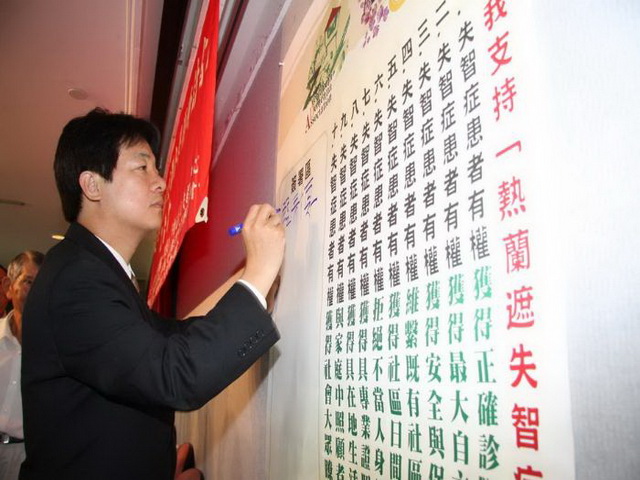 我支持「熱蘭遮失智
、失智症患者有權獲得正確診
二、失智症患者有權獲得最大自
三、失智症患者有權獲得安全與保
四、失智症患者有權維繫既有社區
五、失智症患者有權獲得社區日間
六、失智症患者有權拒絕不當人身
七、失智症患者有權獲得具專業證
八、失智症患者有權獲得具在地生活
九、失智症患者有權與家庭中照顧者
十、失智症患者有權獲得社會大眾瞭
簽署區
Association